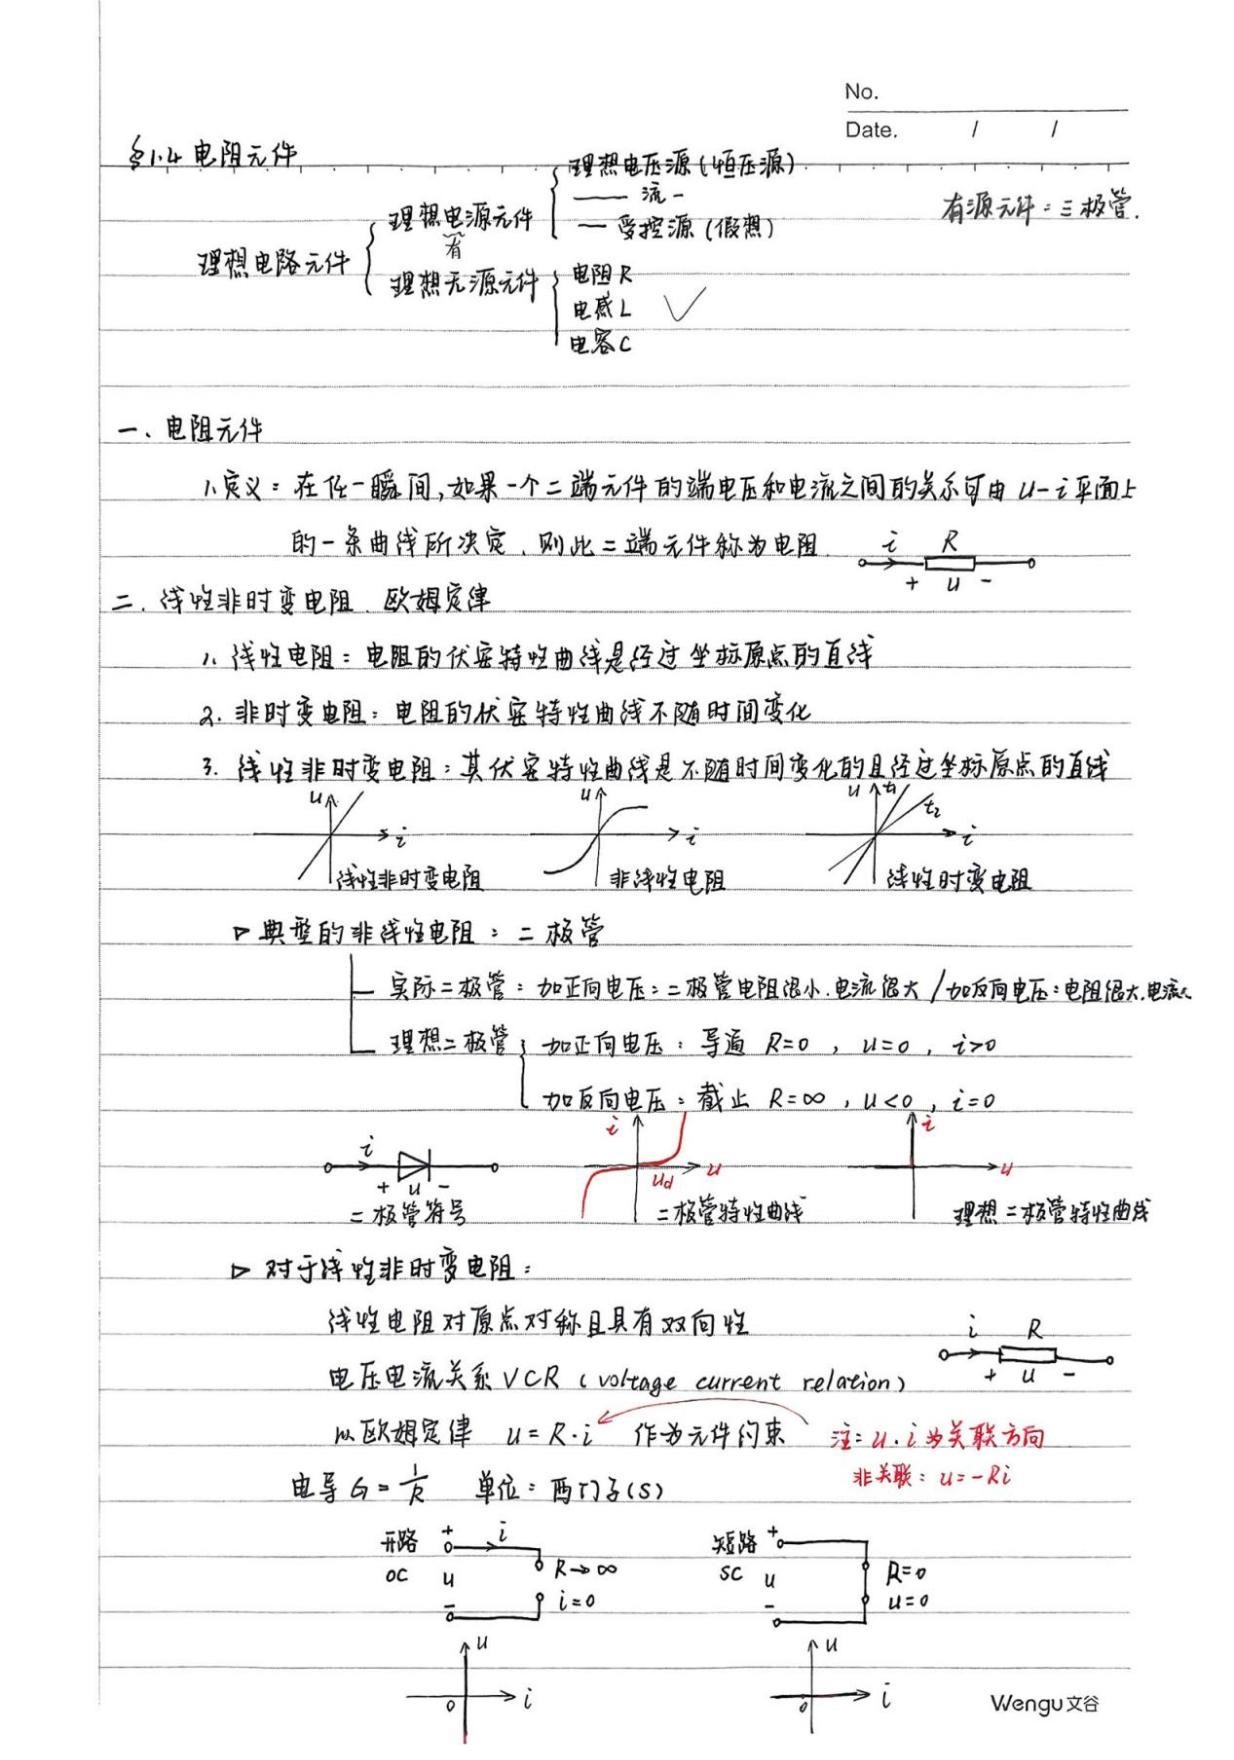 No.
Date. / /
§1.4 电阻元件
理想电压源(恒压源)
—— 流 –
理想电源元件
— 受控源(假想)
有源元件:三极管.
有
理想电路元件
理想无源元件
电阻R
电感L
电容C
一、电阻元件
1.定义:在任一瞬间,如果一个二端元件的端电压和电流之间的关系可由 u-i平面上
的一条曲线所决定、则此二端元件称为电阻.
i R
+ u -
二.线性非时变电阻.欧姆定律
1.线性电阻:电阻的伏安特性曲线是经过坐标原点的直线
2.非时变电阻:电阻的伏安特性曲线不随时间变化
3.线性非时变电阻:其伏安特性曲线是不随时间变化的且经过坐标原点的直线
u u u t1 t2
i i i
线性非时变电阻 非线性电阻 线性时变电阻
▷ 典型的非线性电阻:二极管
实际二极管:加正向电压:二极管电阻很小.电流很大/加反向电压:电阻很大.电流
理想二极管 加正向电压:导通 R=0 , u=0 , i>0
加反向电压:截止 R=∞ , u<0 , i=0
i i i
u_d u u
+ u -
二极管符号 二极管特性曲线 理想二极管特性曲线
▷ 对于线性非时变电阻:
线性电阻对原点对称且具有双向性
i R
+ u -
电压电流关系 VCR (voltage current relation)
以欧姆定律 u=R·i 作为元件约束 注:u.i为关联方向
非关联:u=-Ri
电导G=1/R 单位:西门子(S)
开路 + i 短路 +
OC u R→∞ SC u R=0
- i=0 - u=0
u u
0 i 0 i
Wengu文谷